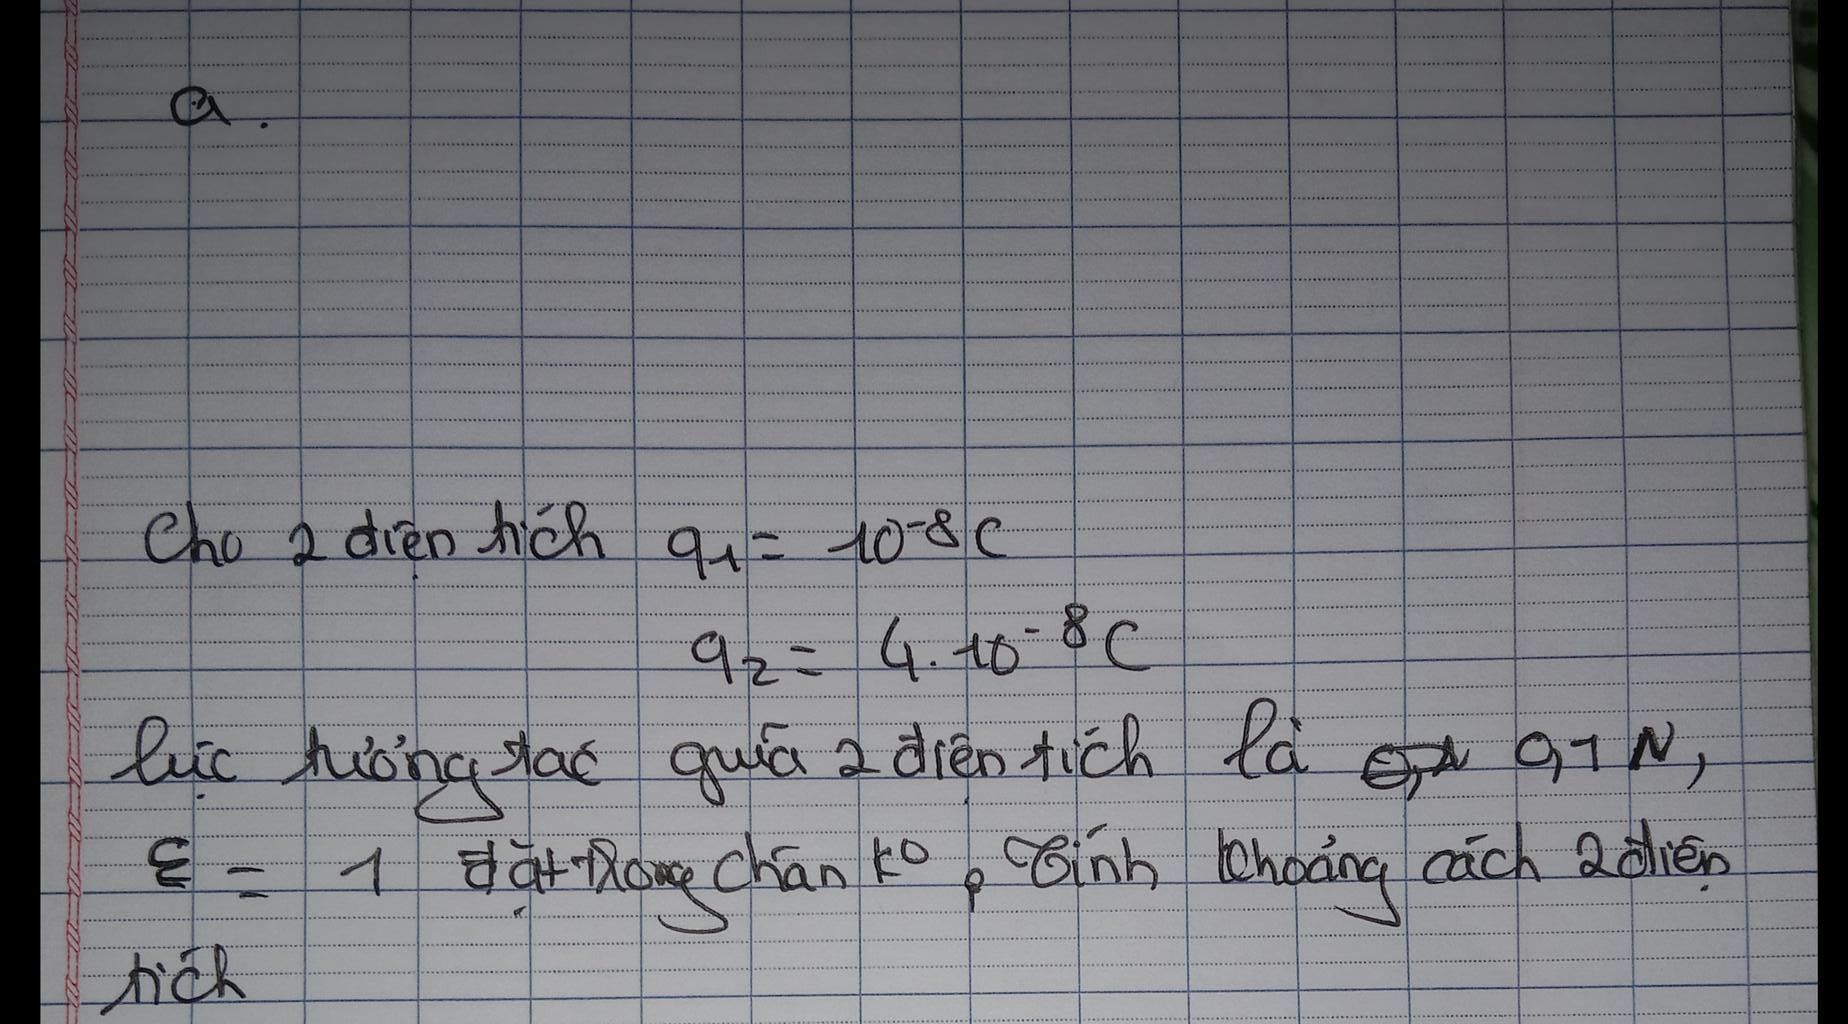 a.
Cho 2 điện tích q₁ = 10⁻⁸C
q₂ = 4.10⁻⁸C
lực tương tác giữa 2 điện tích là 0,1 N,
ε = 1 đặt trong chân ko, Tính khoảng cách 2 điện
tích